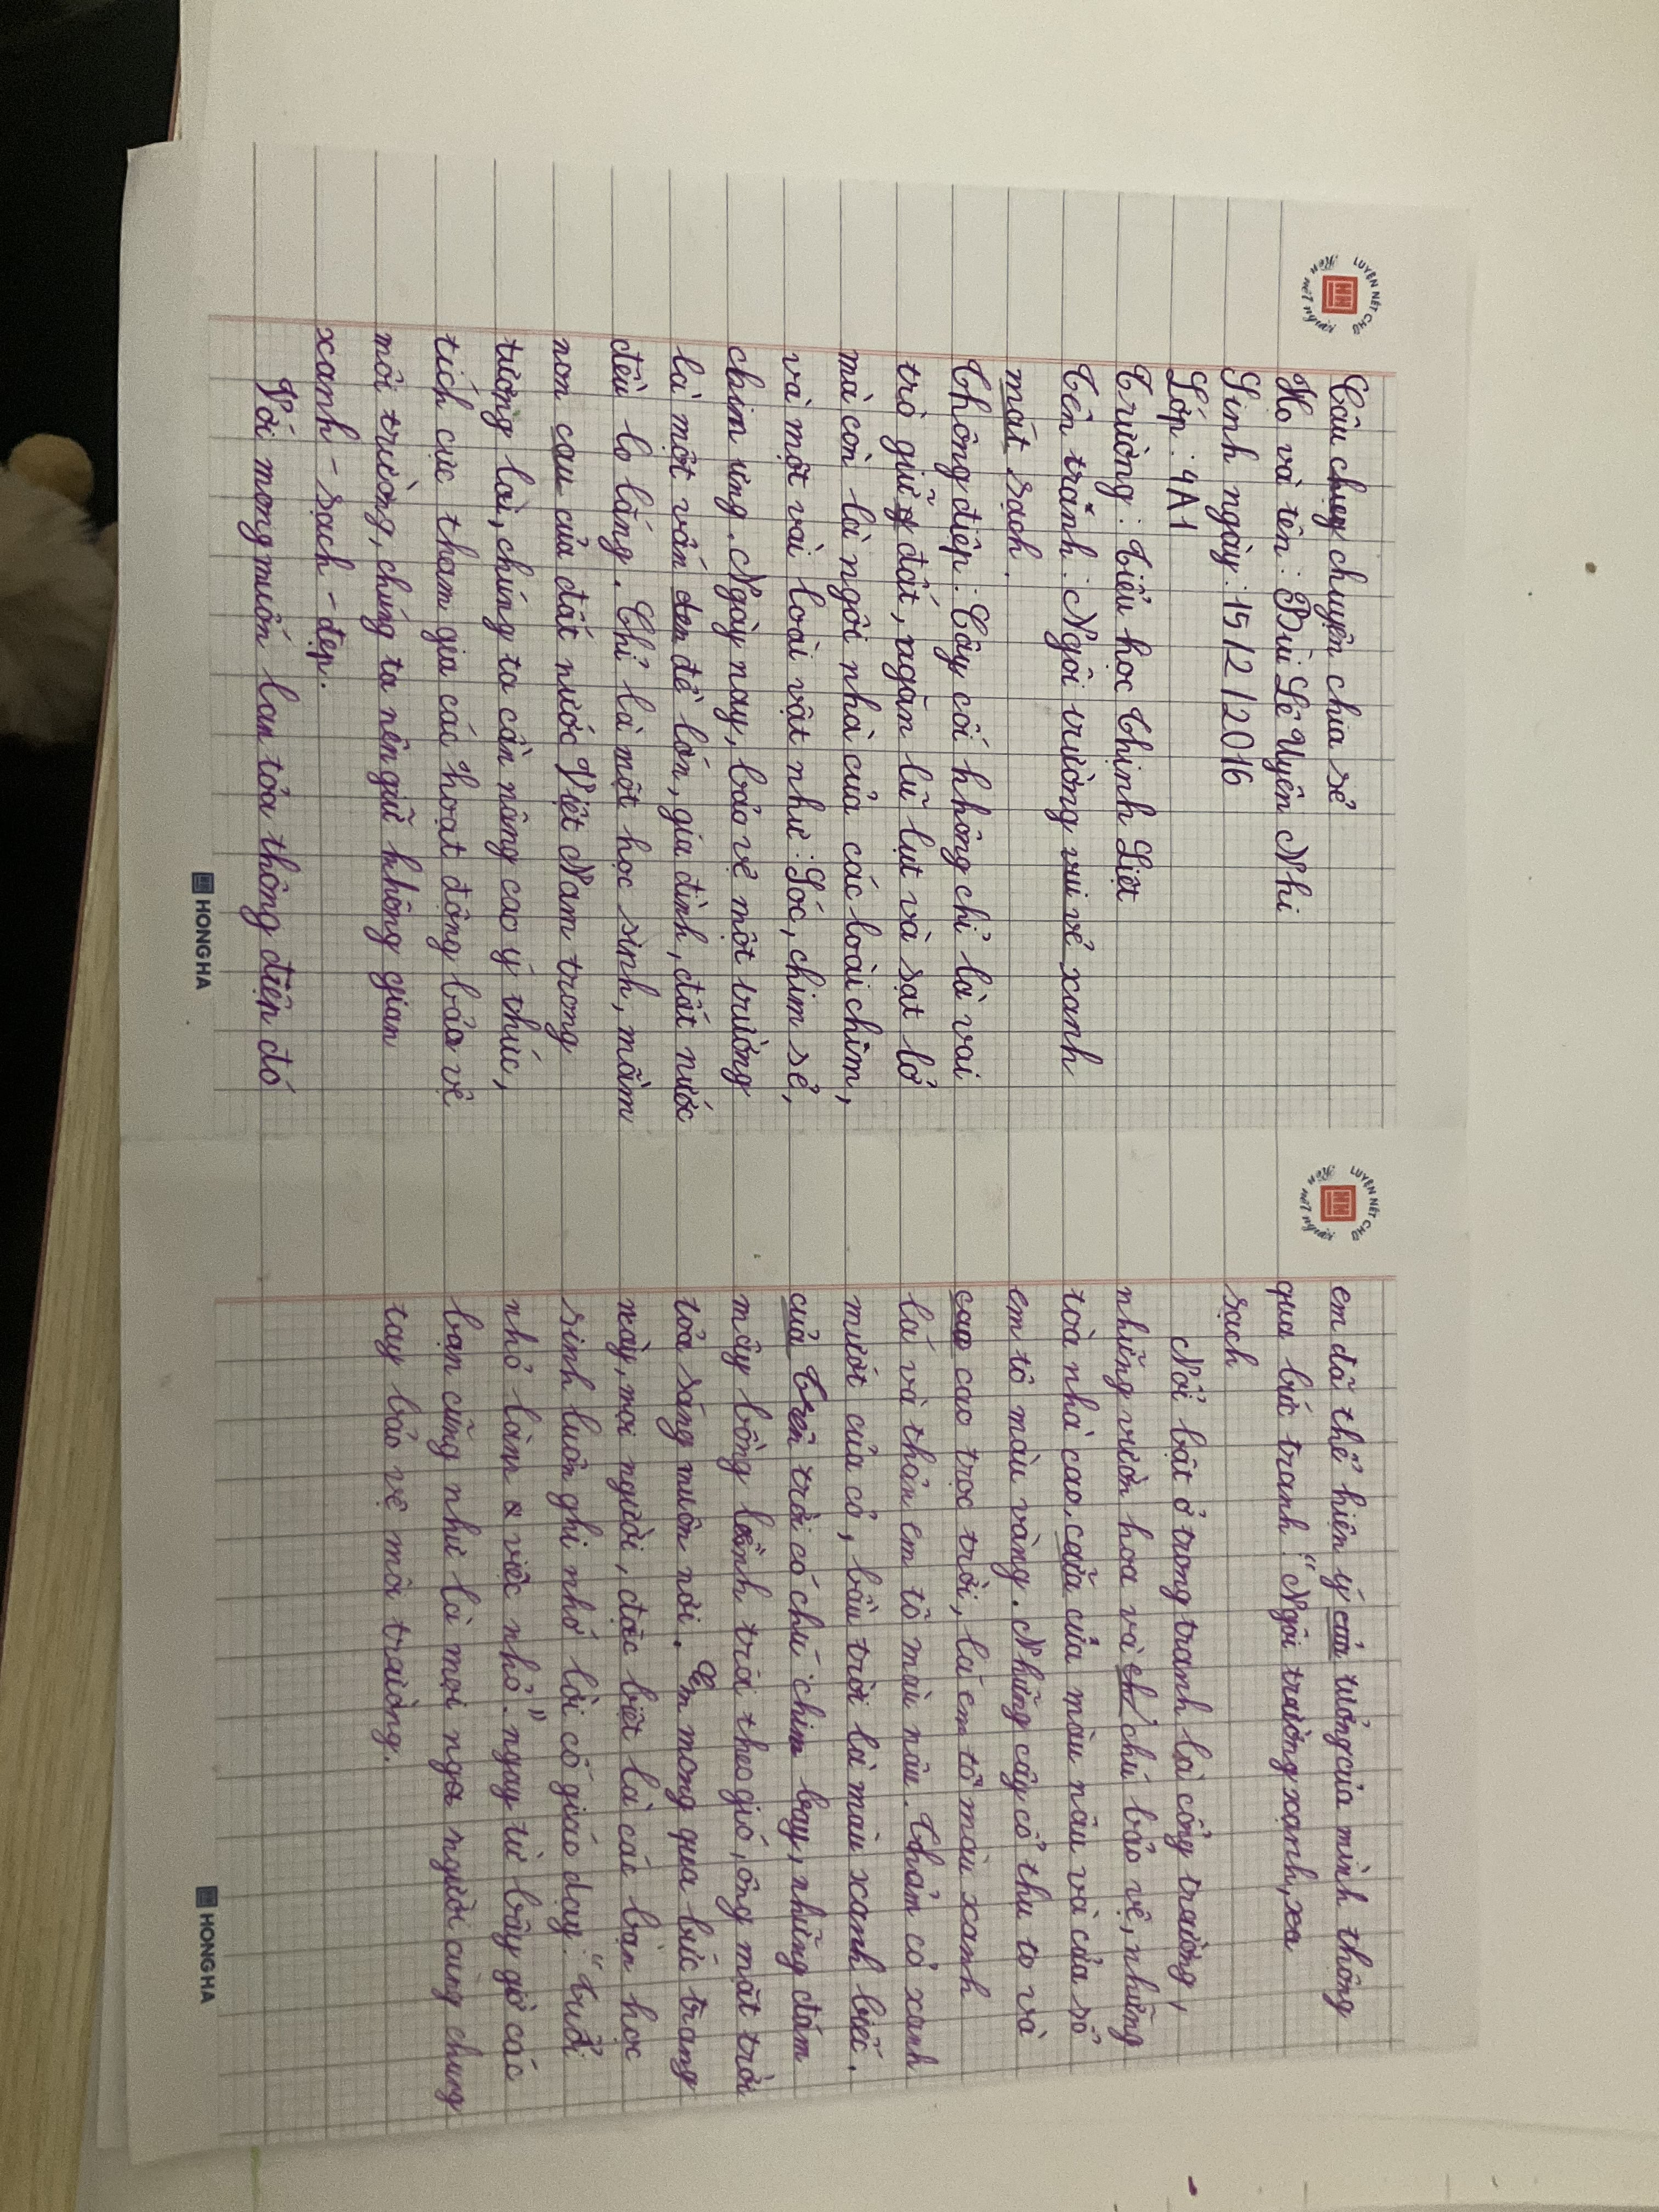 LUYỆN NÉT CHỮ
Rèn nết người
Câu chuy chuyện chia sẻ
Họ và tên : Bùi Lê Uyên Nhi
Sinh ngày : 15 / 2 / 2016
Lớp : 4A1
Trường : Tiểu học Thịnh Liệt
Tên tranh : Ngôi trường vui vẻ xanh
mát sạch.
Thông điệp : Cây cối không chỉ là vai
trò giữ đ đất, ngăn lũ lụt và sạt lở
mà còn là ngôi nhà của các loài chim,
và một vài loài vật như : Sóc, chim sẻ,
chim ưng. Ngày nay, bảo vệ một trường
là một vấn den đề lớn, gia đình, đất nước
đều lo lắng. Chỉ là một học sinh, mầm
non cau của đất nước Việt Nam trong
tương lai, chúng ta cần nâng cao ý thức,
tích cực tham gia các hoạt động bảo vệ
môi trường, chúng ta nên giữ không gian
xanh - sạch - đẹp.
Với mong muốn lan tỏa thông điệp đó
HONG HA
LUYỆN NÉT CHỮ
Rèn nết người
em đã thể hiện ý của tưởng của mình thông
qua bức tranh : “Ngôi trường xanh, xea
sạch
Nổi bật ở trong tranh là cổng trường,
những vườn hoa và ch chú bảo vệ, những
toà nhà cao, cauă của màu nâu và cửa sổ
em tô màu vàng. Những cây cổ thu to và
cao cao trọc trời, lá em tô màu xanh
lá và thân em tô màu nâu. Thảm cỏ xanh
mướt của cỏ, bầu trời là màu xanh biếc.
của Trên trời có chú chim bay, những đám
mây bồng bềnh trôi theo gió, ông mặt trời
tỏa sáng muôn nơi. Em mong qua bức trang
này, mọi người, đặc biệt là các bạn học
sinh luôn ghi nhớ lời cô giáo dạy : “Tuổi
nhỏ làm việc nhỏ”. ngay từ bây giờ các
bạn cũng như là mọi ngơ người cùng chung
tay bảo vệ môi trường.
HONG HA